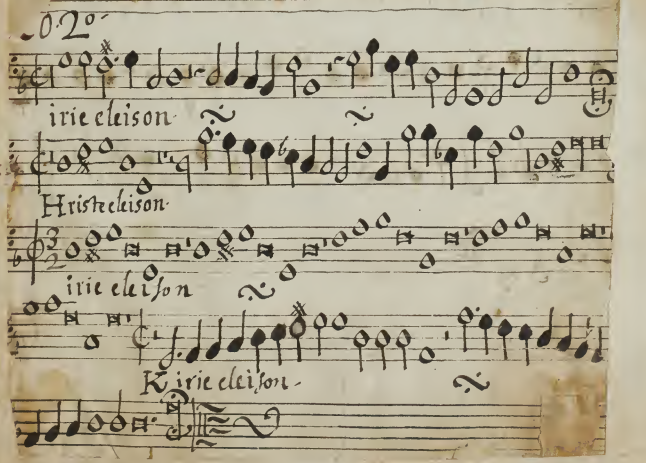 O. 2º
irie eleison.
Hriste eleison.
3
2
irie eleison
Kirie eleison.